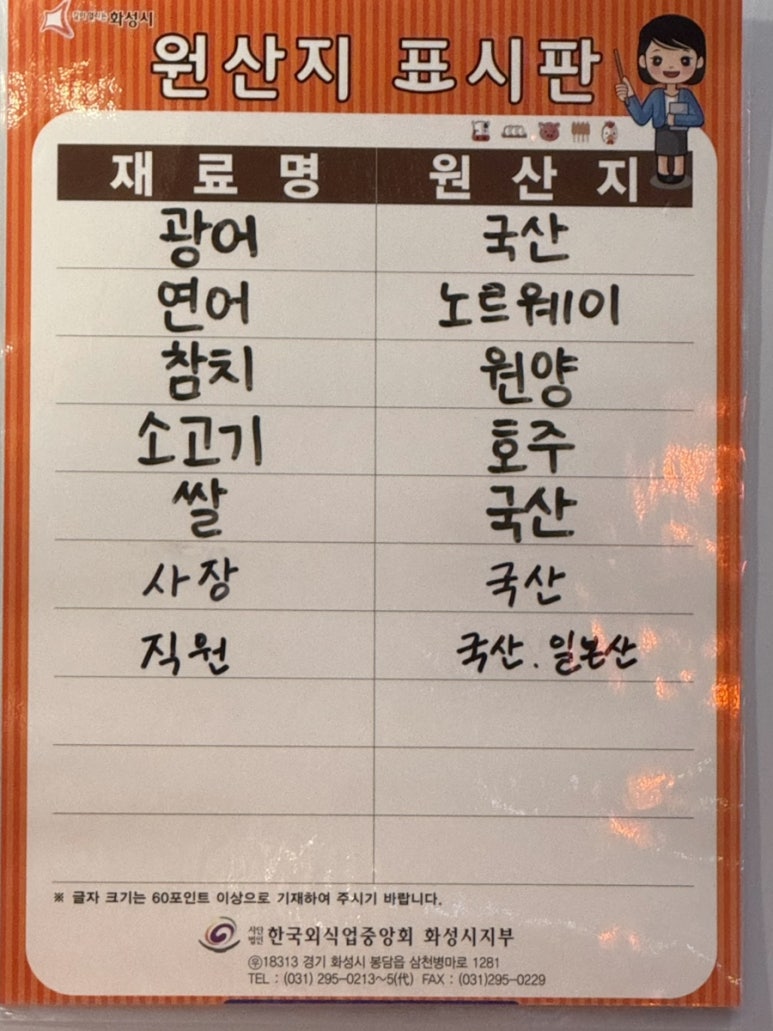 화성시
원산지 표시판
재료명 원산지
광어 국산
연어 노르웨이
참치 원양
소고기 호주
쌀 국산
사장 국산
직원 국산. 일본산
※ 글자 크기는 60포인트 이상으로 기재하여 주시기 바랍니다.
사단법인 한국외식업중앙회 화성시지부
㉾18313 경기 화성시 봉담읍 삼천병마로 1281
TEL : (031) 295-0213~5(代) FAX : (031)295-0229